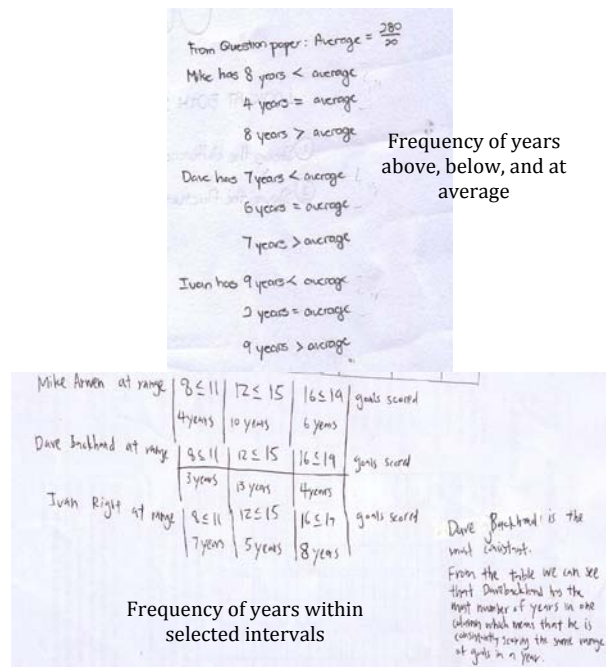 From Question paper: Average = 280/20
Mike has 8 years < average
4 years = average
8 years > average
Frequency of years
above, below, and at
average
Dave has 7 years < average
6 years = average
7 years > average
Ivan has 9 years < average
2 years = average
9 years > average
Mike Arwen at range | 8 ≤ 11 | 12 ≤ 15 | 16 ≤ 19 | goals scored
4 years | 10 years | 6 years
Dave Backhand at range | 8 ≤ 11 | 12 ≤ 15 | 16 ≤ 19 | goals scored
3 years | 13 years | 4 years
Ivan Right at range | 8 ≤ 11 | 12 ≤ 15 | 16 ≤ 19 | goals scored
7 years | 5 years | 8 years
Frequency of years within
selected intervals
Dave Backhand is the
most consistent.
From the table we can see
that Dave backhand has the
most number of years in one
column which means that he is
consistently scoring the same range
of goals in a year.